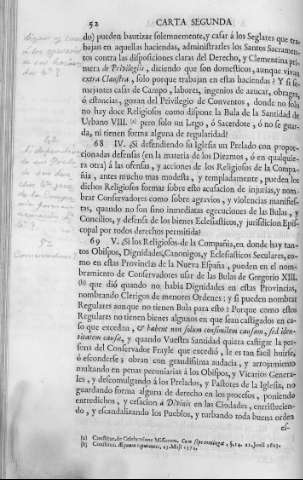 52 CARTA SEGUNDA
do) pueden bautizar solemnemente, y casar á los Seglares que tra-
bajan en aquellas haciendas, administrarles los Santos Sacramen-
tos contra las disposiciones claras del Derecho, y Clementina pri-
mera de Privilegiis, diciendo que son domesticos, aunque vivan
extra Claustra, solo porque trabajan en estas haciendas? Y si se-
mejantes casas de Campo, labores, ingenios de azucar, obrages,
ó estancias, gozan del Privilegio de Conventos, donde no solo
no hay doce Religiosos como dispone la Bula de la Santidad de
Urbano VIII. (a) pero solo un Lego, ó Sacerdote, ó no se guar-
da, ni tienen forma alguna de regularidad?
68 IV. ¿Si defendiendo su Iglesia un Prelado con propor-
cionadas defensas (en la materia de los Diezmos, ó en qualquie-
ra otra) á las ofensas, y acciones de los Religiosos de la Compa-
ñia, antes mucho mas modesta, y templadamente, pueden los
dichos Religiosos formar sobre esto acusacion de injurias, y nom-
brar Conservadores como sobre agravios, y violencias manifies-
tas, quando no son sino inmediatas egecuciones de las Bulas, y
Concilios, y defensa de los bienes Eclesiasticos, y jurisdicion Epis-
copal por todos derechos permitida?
69 V. ¿Si los Religiosos de la Compañia, en donde hay tan-
tos Obispos, Dignidades, Canonigos, y Eclesiasticos Seculares, co-
mo en estas Provincias de la Nueva España, pueden en el nom-
bramiento de Conservadores usar de las Bulas de Gregorio XIII.
(b) que dió quando no habia Dignidades en estas Provincias,
nombrando Clerigos de menores Ordenes; y si pueden nombrar
Regulares aunque no tienen Bula para esto? Porque como estos
Regulares no tienen bienes algunos en que sean castigados en ca-
so que excedan, & habent non solum consimilem causam, sed iden-
titatem causæ, y quando Vuestra Santidad quiera castigar la per-
sona del Conservador Frayle que excedió, le es tan facil huirse,
ó esconderse; obran con grandisima audacia, y arrojamiento
multando en penas pecuniarias á los Obispos, y Vicarios Genera-
les, y descomulgando á los Prelados, y Pastores de la Iglesia, no
guardando forma alguna de derecho en los procesos, poniendo
entredichos, y cesacion à Divinis en las Ciudades, entristecien-
do, y escandalizando los Pueblos, y turbando toda buena orden
es-